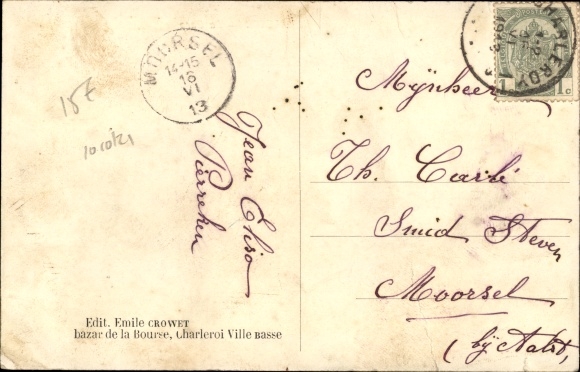 MOORSEL
14-15
16
VI
13
15€
Jean Elisa
Pierreken
Edit. Emile CROWET
bazar de la Bourse, Charleroi Ville BASSE
CHARLEROY
1c
Mijnheer
Th. Carlé
Smid Steven
Moorsel
(bij Aalst,